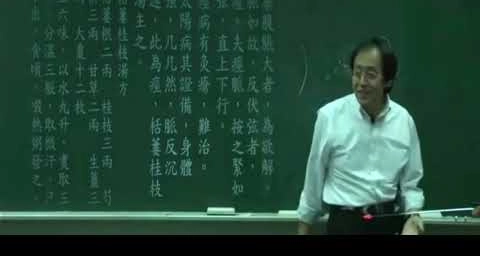 暴腹脹大者,為欲解。
脈如故,反伏弦者,
痙。夫痙脈,按之緊如
弦,直上下行。
痙病有灸瘡,難治。
太陽病其證備,身體
強,几几然,脈反沉
遲,此為痙,栝蔞桂枝
湯主之。
栝蔞桂枝湯方
蔞根二兩 桂枝三兩 芍
三兩 甘草二兩 生薑三
大棗十二枚
六味,以水九升,煮取三
分溫三服,取微汗。汗
出,食頃,啜熱粥發之。